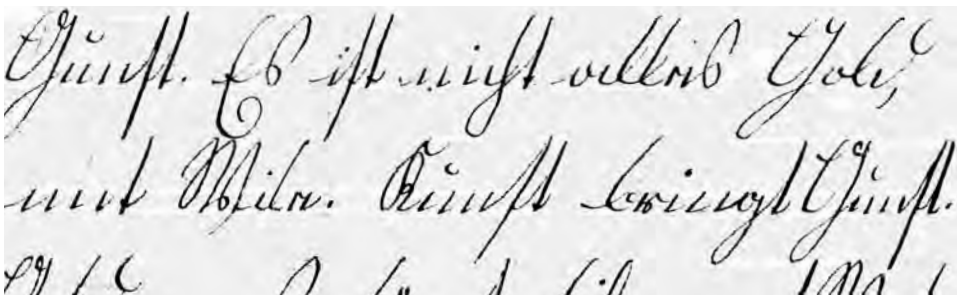 Gunst. Es ist nicht alles Gold,
mit Weile. Kunst bringt Gunst.